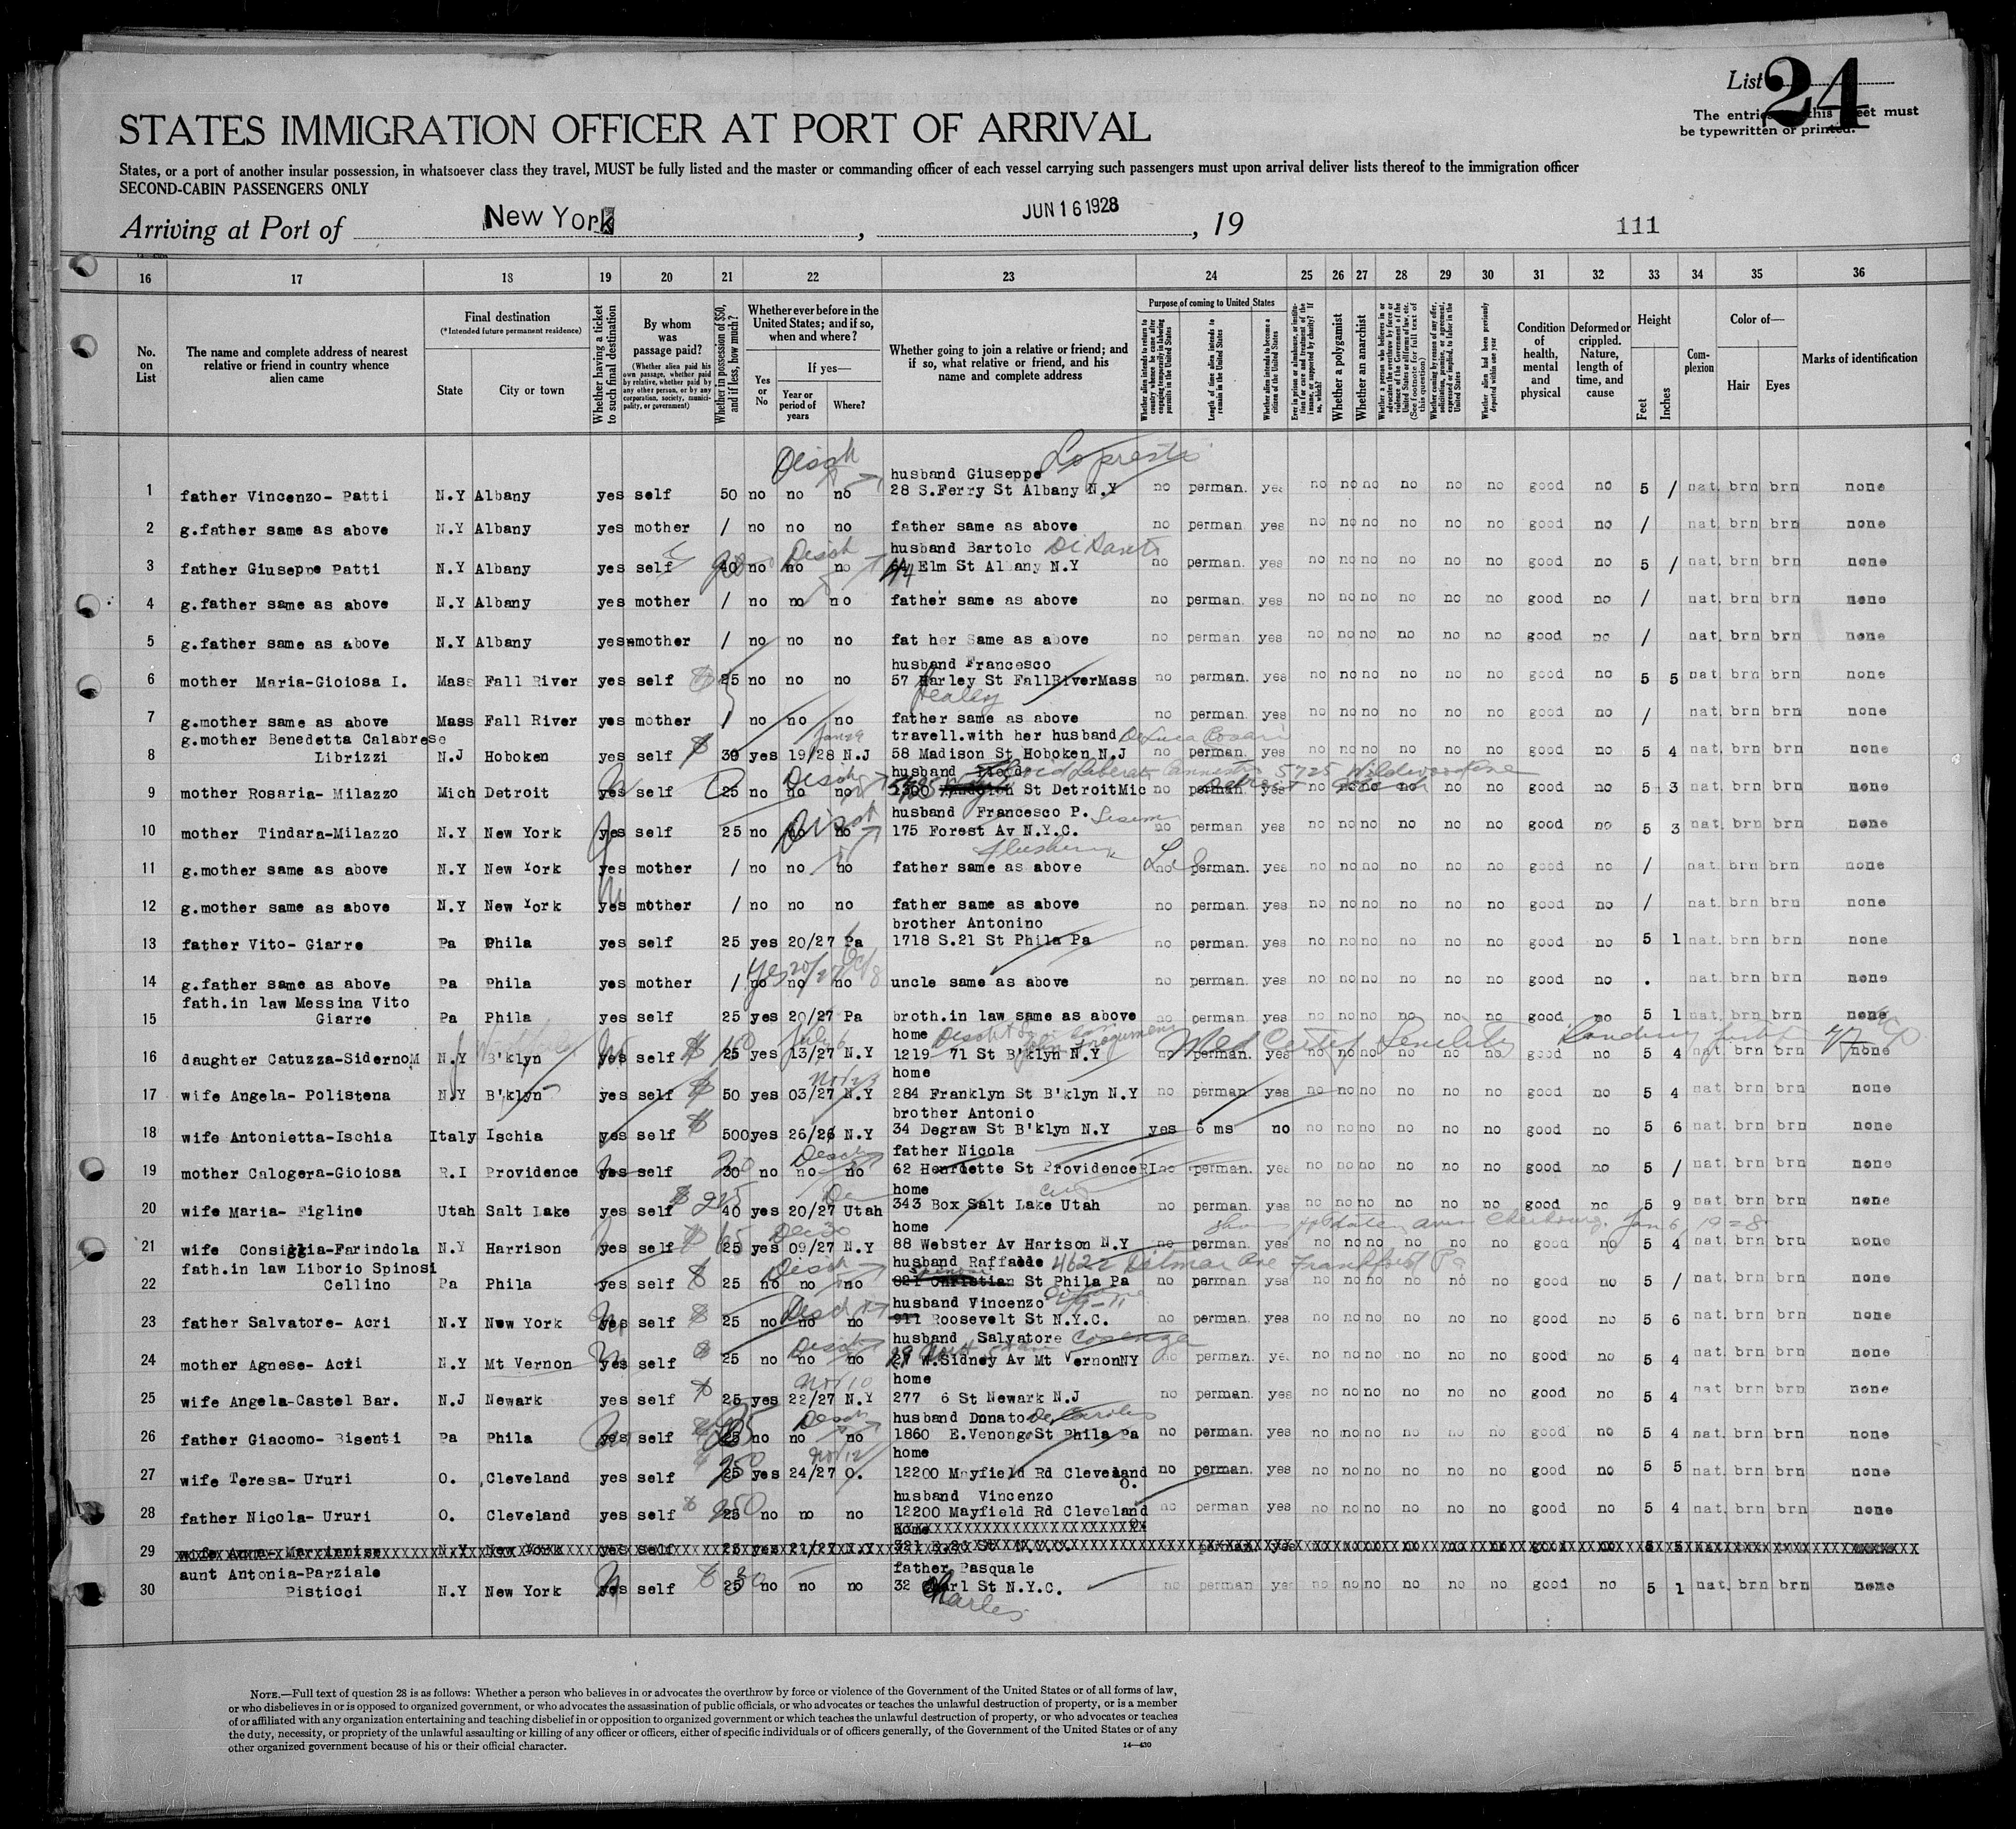 List 24
The entries this sheet must
be typewritten or printed.
STATES IMMIGRATION OFFICER AT PORT OF ARRIVAL
States, or a port of another insular possession, in whatsoever class they travel, MUST be fully listed and the master or commanding officer of each vessel carrying such passengers must upon arrival deliver lists thereof to the immigration officer
SECOND-CABIN PASSENGERS ONLY
Arriving at Port of New York, JUN 16 1928, 19 111
16 17 18 19 20 21 22 23 24 25 26 27 28 29 30 31 32 33 34 35 36
No. on List
The name and complete address of nearest relative or friend in country whence alien came
Final destination
(*Intended future permanent residence)
State
City or town
Whether having a ticket to such final destination
By whom was passage paid?
(Whether alien paid his own passage, whether paid by relative, whether paid by any other person, or by any corporation, society, municipality, or government)
Whether in possession of $50, and if less, how much?
Whether ever before in the United States; and if so, when and where?
Yes or No
If yes—
Year or period of years
Where?
Whether going to join a relative or friend; and if so, what relative or friend, and his name and complete address
Purpose of coming to United States
Whether alien intends to return to country whence he came after engaging temporarily in laboring pursuits in the United States
Length of time alien intends to remain in the United States
Whether alien intends to become a citizen of the United States
Ever in prison or almshouse, or institution for care and treatment of the insane, or supported by charity? If so, which?
Whether a polygamist
Whether an anarchist
Whether a person who believes in or advocates the overthrow by force or violence of the Government of the United States or all forms of law, etc. (See footnote for full text of this question)
Whether coming by reason of any offer, solicitation, promise, or agreement, expressed or implied, to labor in the United States
Whether alien had been previously deported within one year
Condition of health, mental and physical
Deformed or crippled. Nature, length of time, and cause
Height
Feet
Inches
Complexion
Color of—
Hair
Eyes
Marks of identification
husband Giuseppe Lopresti
1 father Vincenzo- Patti N.Y Albany yes self 50 no no no 28 S.Ferry St Albany N.Y no perman. yes no no no no no no good no 5 / nat. brn brn none
2 g.father same as above N.Y Albany yes mother / no no no father same as above no perman. yes no no no no no no good no / nat. brn brn none
husband Bartolo
3 father Giuseppe Patti N.Y Albany yes self 40 no no no Elm St Albany N.Y no perman. yes no no no no no no good no 5 / nat. brn brn none
4 g.father same as above N.Y Albany yes mother / no no no father same as above no perman. yes no no no no no no good no / nat. brn brn none
5 g.father same as above N.Y Albany yes mother / no no no fat her Same as above no perman. yes no no no no no no good no / nat. brn brn none
husband Francesco
6 mother Maria-Gioiosa I. Mass Fall River yes self 25 no no no 57 Harley St FallRiverMass no perman. yes no no no no no no good no 5 5 nat. brn brn none
Healey
7 g.mother same as above Mass Fall River yes mother / no no no father same as above no perman. yes no no no no no no good no / nat. brn brn none
g.mother Benedetta Calabrese travell.with her husband
8 Librizzi N.J Hoboken yes self 30 yes 19/28 N.J 58 Madison St Hoboken N.J no perman. yes no no no no no no good no 5 4 nat. brn brn none
husband 5725 Wildwood
9 mother Rosaria- Milazzo Mich Detroit yes self 25 no no no St DetroitMic no perman. yes no no no no no no good no 5 3 nat. brn brn none
husband Francesco P.
10 mother Tindara-Milazzo N.Y New York yes self 25 no no no 175 Forest Av N.Y.C. no perman yes no no no no no no good no 5 3 nat. brn brn none
Flushing
11 g.mother same as above N.Y New York yes mother / no no no father same as above no perman. yes no no no no no no good no / nat. brn brn none
12 g.mother same as above N.Y New York yes mother / no no no father same as above no perman. yes no no no no no no good no / nat. brn brn none
brother Antonino
13 father Vito- Giarre Pa Phila yes self 25 yes 20/27 Pa 1718 S.21 St Phila Pa no perman. yes no no no no no no good no 5 1 nat. brn brn none
yes 20/27
14 g.father same as above Pa Phila yes mother / no no no uncle same as above no perman. yes no no no no no no good no . nat. brn brn none
fath.in law Messina Vito
15 Giarre Pa Phila yes self 25 yes 20/27 Pa broth.in law same as above no perman. yes no no no no no no good no 5 1 nat. brn brn none
home Med Certif Senility
16 daughter Catuzza-SidernoM N.Y B'klyn yes self 25 yes 13/27 N.Y 1219 71 St B'klyn N.Y no perman. yes no no no no no no good no 5 4 nat brn brn none
home
17 wife Angela- Polistena N.Y B'klyn yes self 50 yes 03/27 N.Y 284 Franklyn St B'klyn N.Y no perman yes no no no no no no good no 5 4 nat brn brn none
brother Antonio
18 wife Antonietta-Ischia Italy Ischia yes self 500 yes 26/26 N.Y 34 Degraw St B'klyn N.Y yes 6 ms no no no no no no no good no 5 6 nat. brn brn none
father Nicola
19 mother Calogera-Gioiosa R.I Providence yes self 30 no no no 62 Henriette St ProvidenceRI no perman. yes no no no no no no good no 5 / nat. brn brn none
home
20 wife Maria- Figline Utah Salt Lake yes self 40 yes 20/27 Utah 343 Box Salt Lake Utah no perman. yes no no no no no no good no 5 9 nat. brn brn none
Dec 30 home Cherbourg. Jan 6, 1928
21 wife Consiglia-Farindola N.Y Harrison yes self 25 yes 09/27 N.Y 88 Webster Av Harison N.Y no perman. yes no no no no no no good no 5 4 nat. brn brn none
fath.in law Liborio Spinosi husband Raffaele 4622 Ditmar Ave Frankford Pa
22 Cellino Pa Phila yes self 25 no no no 821 Christian St Phila Pa no perman. yes no no no no no no good no 5 / nat. brn brn none
husband Vincenzo
23 father Salvatore- Acri N.Y New York yes self 25 no no no 911 Roosevelt St N.Y.C. no perman. yes no no no no no no good no 5 6 nat. brn brn none
husband Salvatore Cosenza
24 mother Agnese- Acri N.Y Mt Vernon yes self 25 no no no 27 W.Sidney Av Mt VernonNY no perman. yes no no no no no no good no 5 4 nat. brn brn none
Nov 10 home
25 wife Angela-Castel Bar. N.J Newark yes self 25 yes 22/27 N.Y 277 6 St Newark N.J no perman. yes no no no no no no good no 5 4 nat. brn brn none
husband Donato
26 father Giacomo- Bisenti Pa Phila yes self 25 no no no 1860 E.Venongo St Phila Pa no perman. yes no no no no no no good no 5 4 nat. brn brn none
Nov 12 home
27 wife Teresa- Ururi O. Cleveland yes self 25 yes 24/27 O. 12200 Mayfield Rd Cleveland O. no perman. yes no no no no no no good no 5 5 nat. brn brn none
husband Vincenzo
28 father Nicola- Ururi O. Cleveland yes self 25 no no no 12200 Mayfield Rd Cleveland no perman yes no no no no no no good no 5 4 nat. brn brn none
home
29 wife Anna- N.Y New York yes self 25 yes 21/27 N.Y perman yes
aunt Antonia-Parziale father Pasquale
30 Pisticci N.Y New York yes self 25 no no no 32 Carl St N.Y.C. no perman yes no no no no no no good no 5 1 nat. brn brn none
Charles
NOTE.—Full text of question 28 is as follows: Whether a person who believes in or advocates the overthrow by force or violence of the Government of the United States or of all forms of law,
or who disbelieves in or is opposed to organized government, or who advocates the assassination of public officials, or who advocates or teaches the unlawful destruction of property, or is a member
of or affiliated with any organization entertaining and teaching disbelief in or opposition to organized government or which teaches the unlawful destruction of property, or who advocates or teaches
the duty, necessity, or propriety of the unlawful assaulting or killing of any officer or officers, either of specific individuals or of officers generally, of the Government of the United States or of any
other organized government because of his or their official character.
14—430